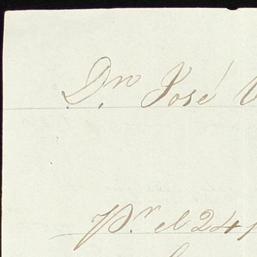 Dn. José
Pr. el 24